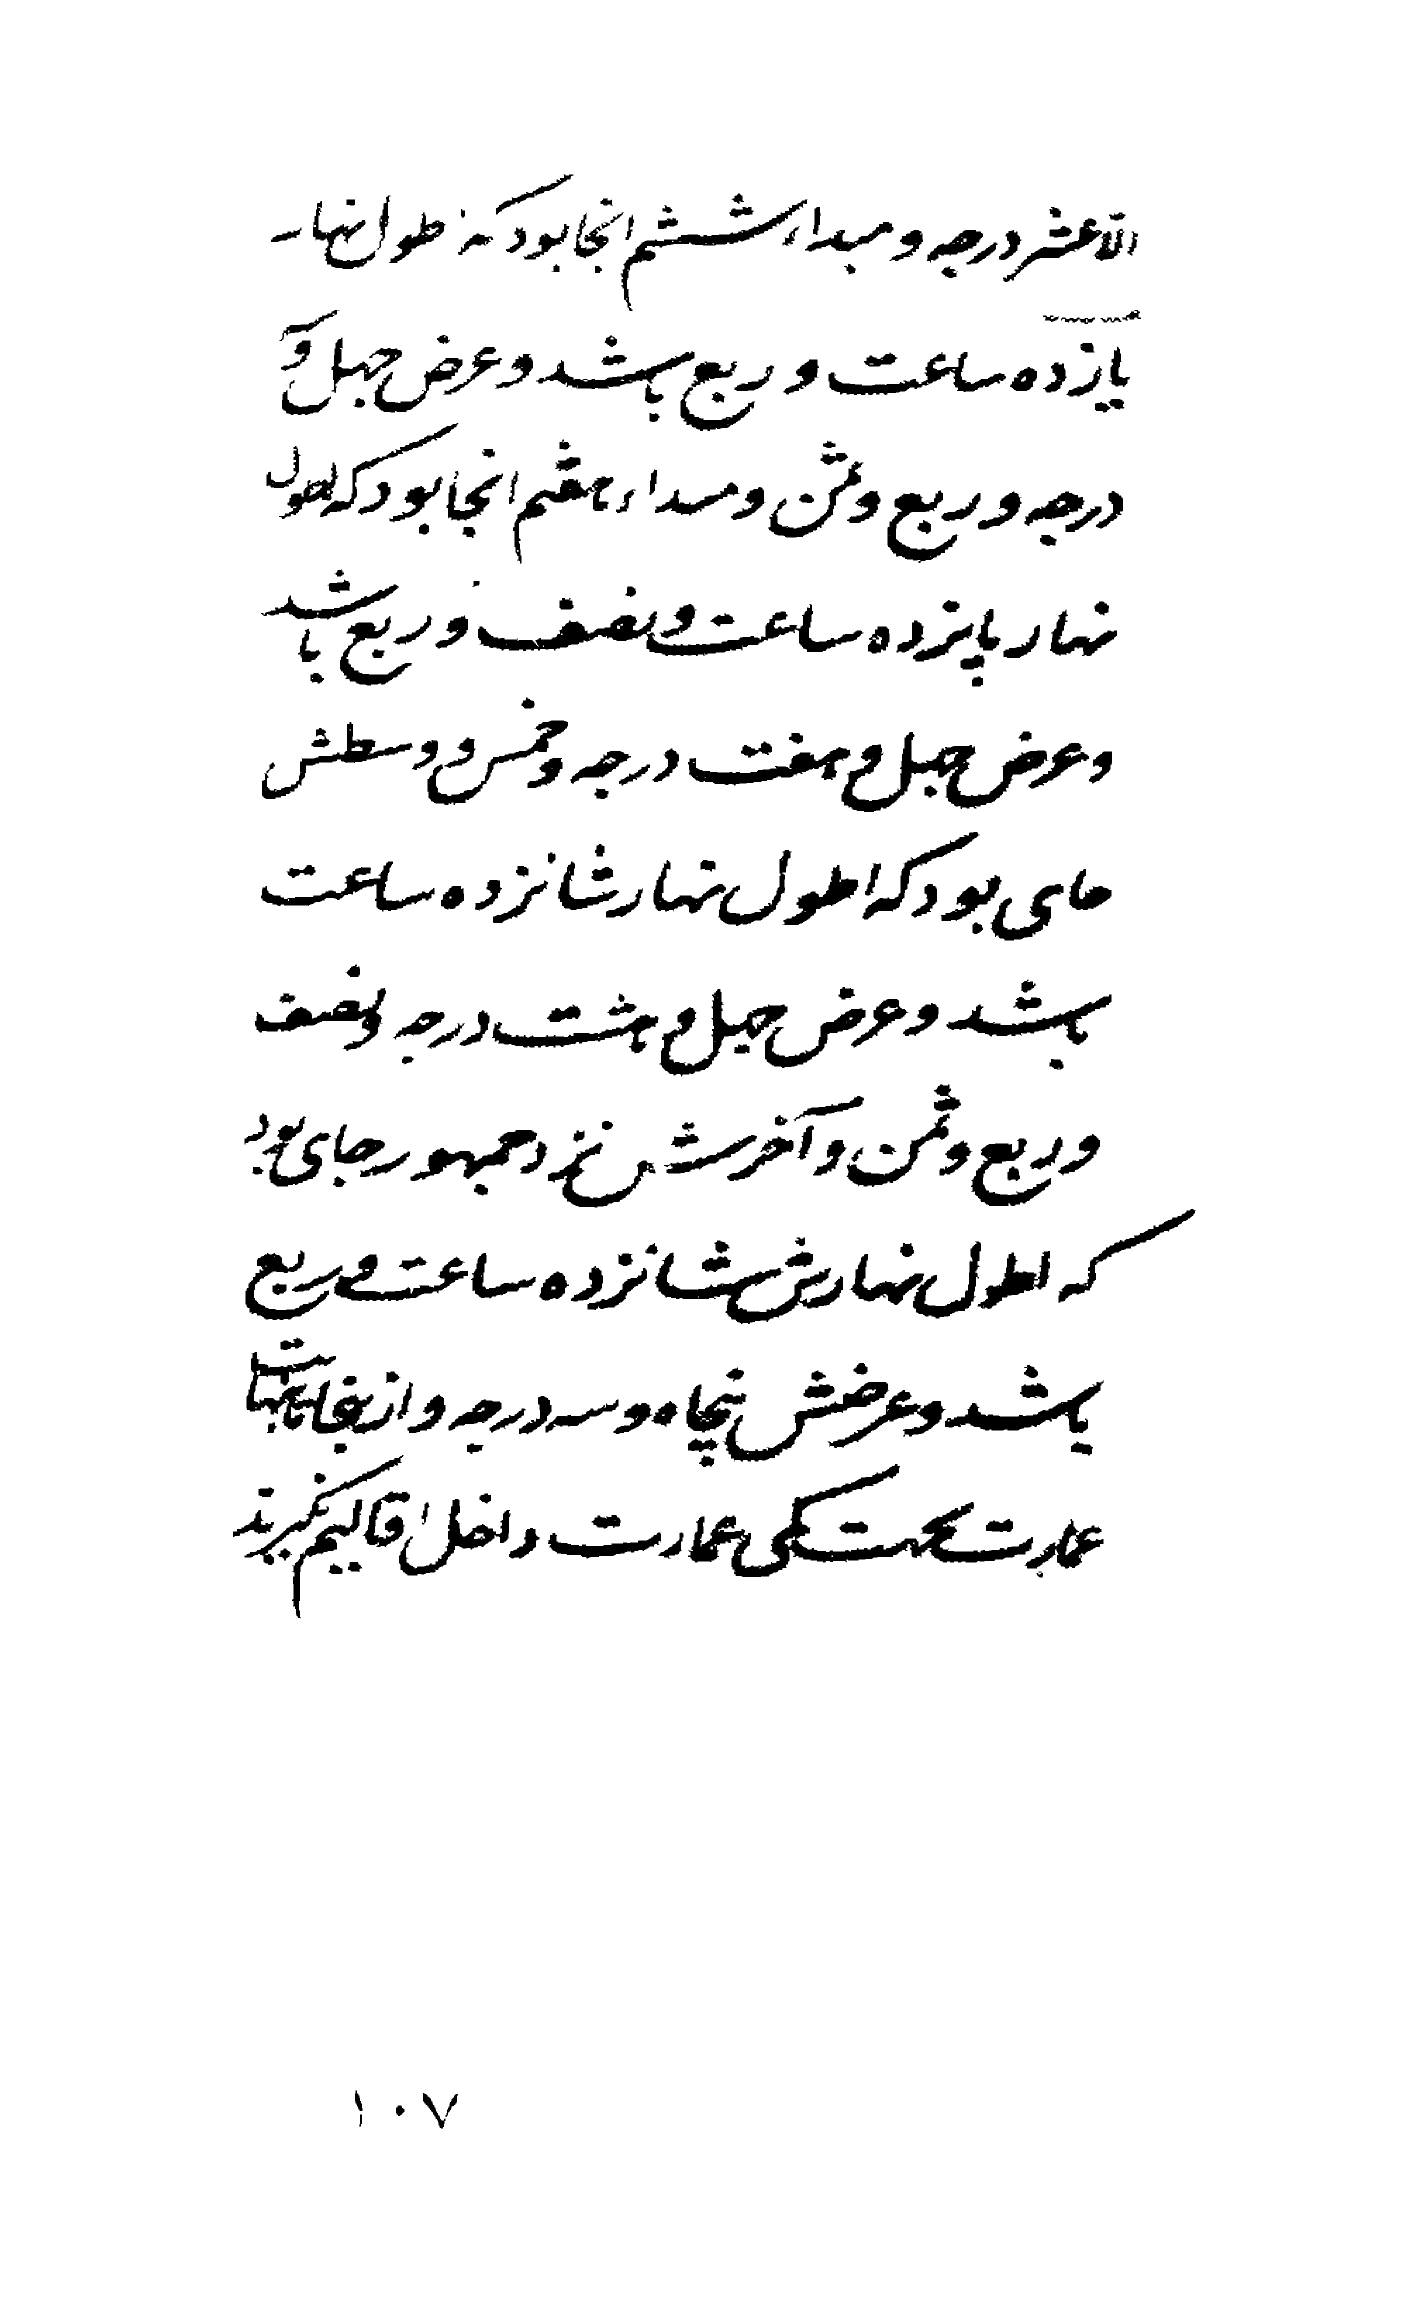 الّا عشر درجه و مبداء ششم انجا بود که طول نهار
یازده ساعت و ربع باشد و عرض چهل و
درجه و ربع و ثمن و مبداء هفتم انجا بود که اطول
نهار پانزده ساعت و نصف و ربع باشد
و عرض چهل و هفت درجه و خمس و وسطش
جای بود که اطول نهار شانزده ساعت
باشد و عرض چهل و هشت درجه و نصف
و ربع و ثمن و آخرش نزد جمهور جای بود
که اطول نهارش شانزده ساعت و ربع
باشد و عرضش پنجاه و سه درجه و از ینجا تا نهایت
عمارت بجهت کمی عمارت داخل اقالیم نگیرند
١٠٧